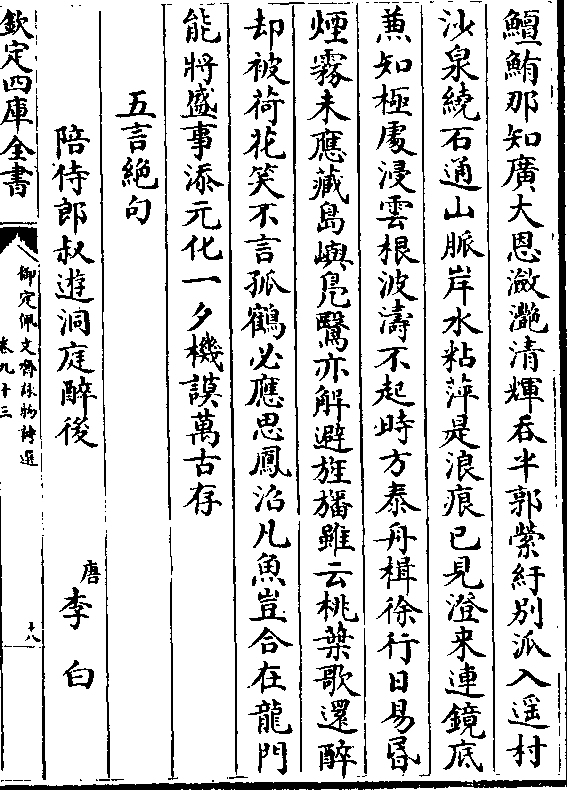 鱣鮪那知廣大恩瀲灧清輝吞半郭縈紆别派入遥村
沙泉繞石通山脈岸水粘萍是浪痕已見澄来連鏡底
兼知極處浸雲根波濤不起時方泰舟楫徐行日易昏
煙霧未應藏島嶼鳧鷖亦解避旌旛雖云桃葉歌還醉
却被荷花笑不言孤鶴必應思鳳沼凡魚豈合在龍門
能將盛事添元化一夕機謨萬古存
五言絶句
陪侍郎叔遊洞庭醉後
唐李白
欽定四庫全書
御定佩文齋詠物詩選
卷九十三
十八